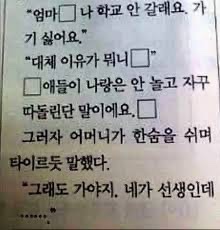 "엄마□ 나 학교 안 갈래요. 가
기 싫어요."
"대체 이유가 뭐니□
□애들이 나랑은 안 놀고 자꾸
따돌린단 말이에요.□
그러자 어머니가 한숨을 쉬며
타이르듯 말했다.
"그래도 가야지. 네가 선생인데
……."